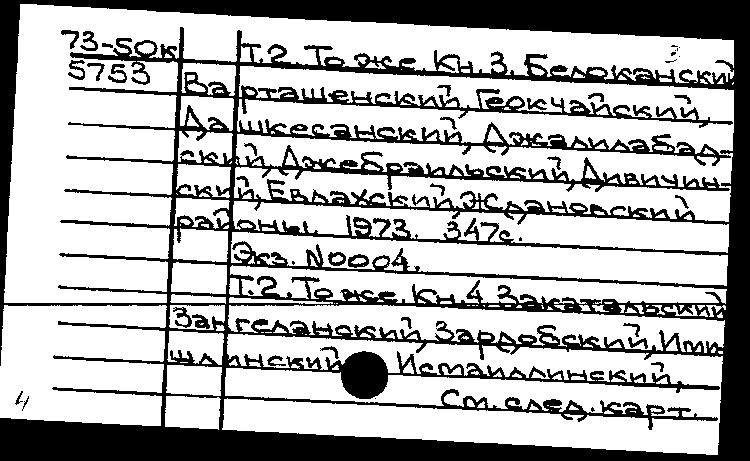 3
73-50к Т.2. То же. Кн.3. Белоканский
5753 Варташенский, Геокчайский,
Дашкесанский, Джалилабад-
ский, Джебраильский, Дивичин-
ский, Евлахский, Ждановский
районы. 1973. 347с.
Экз. N0004.
Т.2. То же. Кн.4 Закатальский
Зангеланский, Зардобский, Ими-
шлинский Исмаиллинский,
4 См. след. карт.